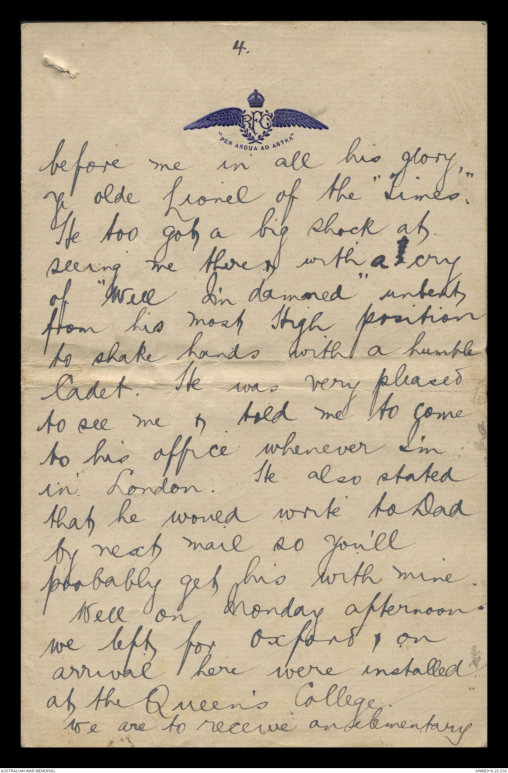 4.
RFC
"PER ARDUA AD ASTRA"
before me in all his glory,
ye olde Lionel of the "Times".
He too got a big shock at
seeing me there & with a cry
of "Well I'm damned" unbent
from his most High position
to shake hands with a humble
Cadet. He was very pleased
to see me & told me to come
to his office whenever I'm
in London. He also stated
that he would write to Dad
by next mail so you'll
probably get his with mine.
Well on Monday afternoon
we left for Oxford & on
arrival here were installed
at the Queen's College.
We are to receive an elementary
AUSTRALIAN WAR MEMORIAL